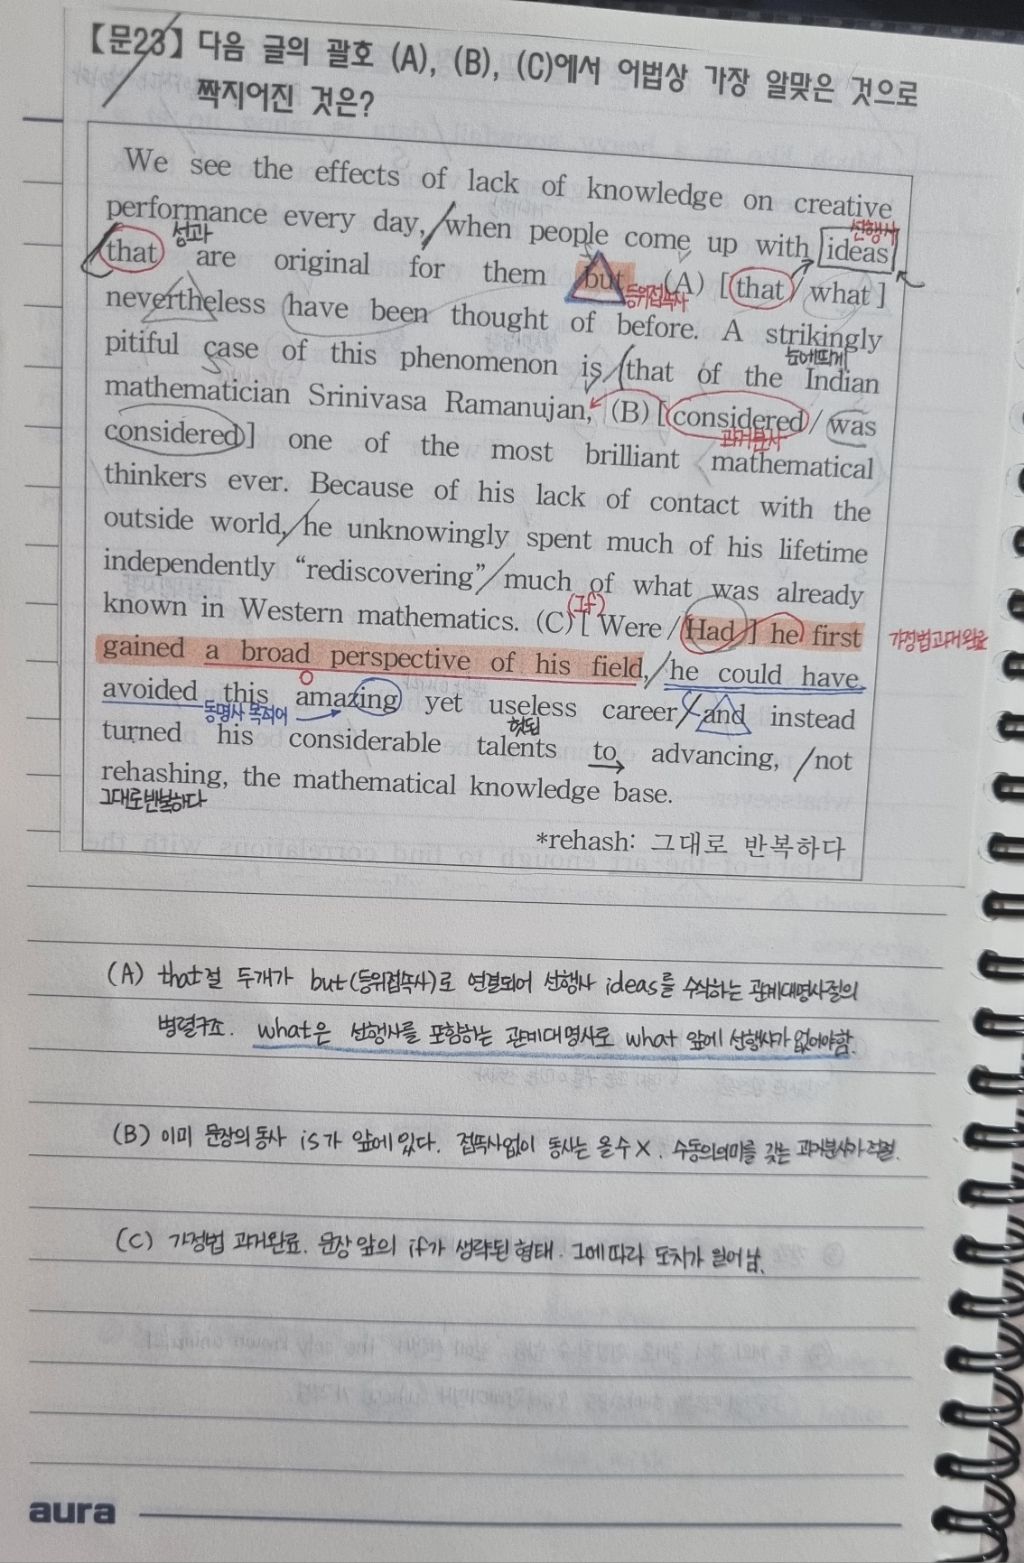 【문23】 다음 글의 괄호 (A), (B), (C)에서 어법상 가장 알맞은 것으로
짝지어진 것은?
We see the effects of lack of knowledge on creative
performance every day, when people come up with ideas
성과
선행사
that are original for them but (A) [that / what]
등위접속사
nevertheless have been thought of before. A strikingly
눈에띄게
pitiful case of this phenomenon is that of the Indian
mathematician Srinivasa Ramanujan, (B) [considered / was
과거분사
considered] one of the most brilliant mathematical
thinkers ever. Because of his lack of contact with the
outside world, he unknowingly spent much of his lifetime
independently “rediscovering” much of what was already
(If)
known in Western mathematics. (C) [ Were / Had ] he first
가정법과거완료
gained a broad perspective of his field, he could have
avoided this amazing yet useless career and instead
동명사 목적어
헛된
turned his considerable talents to advancing, not
rehashing, the mathematical knowledge base.
그대로반복하다
*rehash: 그대로 반복하다
(A) that절 두개가 but(등위접속사)로 연결되어 선행사 ideas를 수식하는 관계대명사절의
병렬구조. what은 선행사를 포함하는 관계대명사로 what 앞에 선행사가 없어야함.
(B) 이미 문장의 동사 is가 앞에 있다. 접속사없이 동사는 올수 X. 수동의의미를 갖는 과거분사가 적절.
(C) 가정법 과거완료. 문장 앞의 if가 생략된 형태. 그에따라 도치가 일어남.
aura